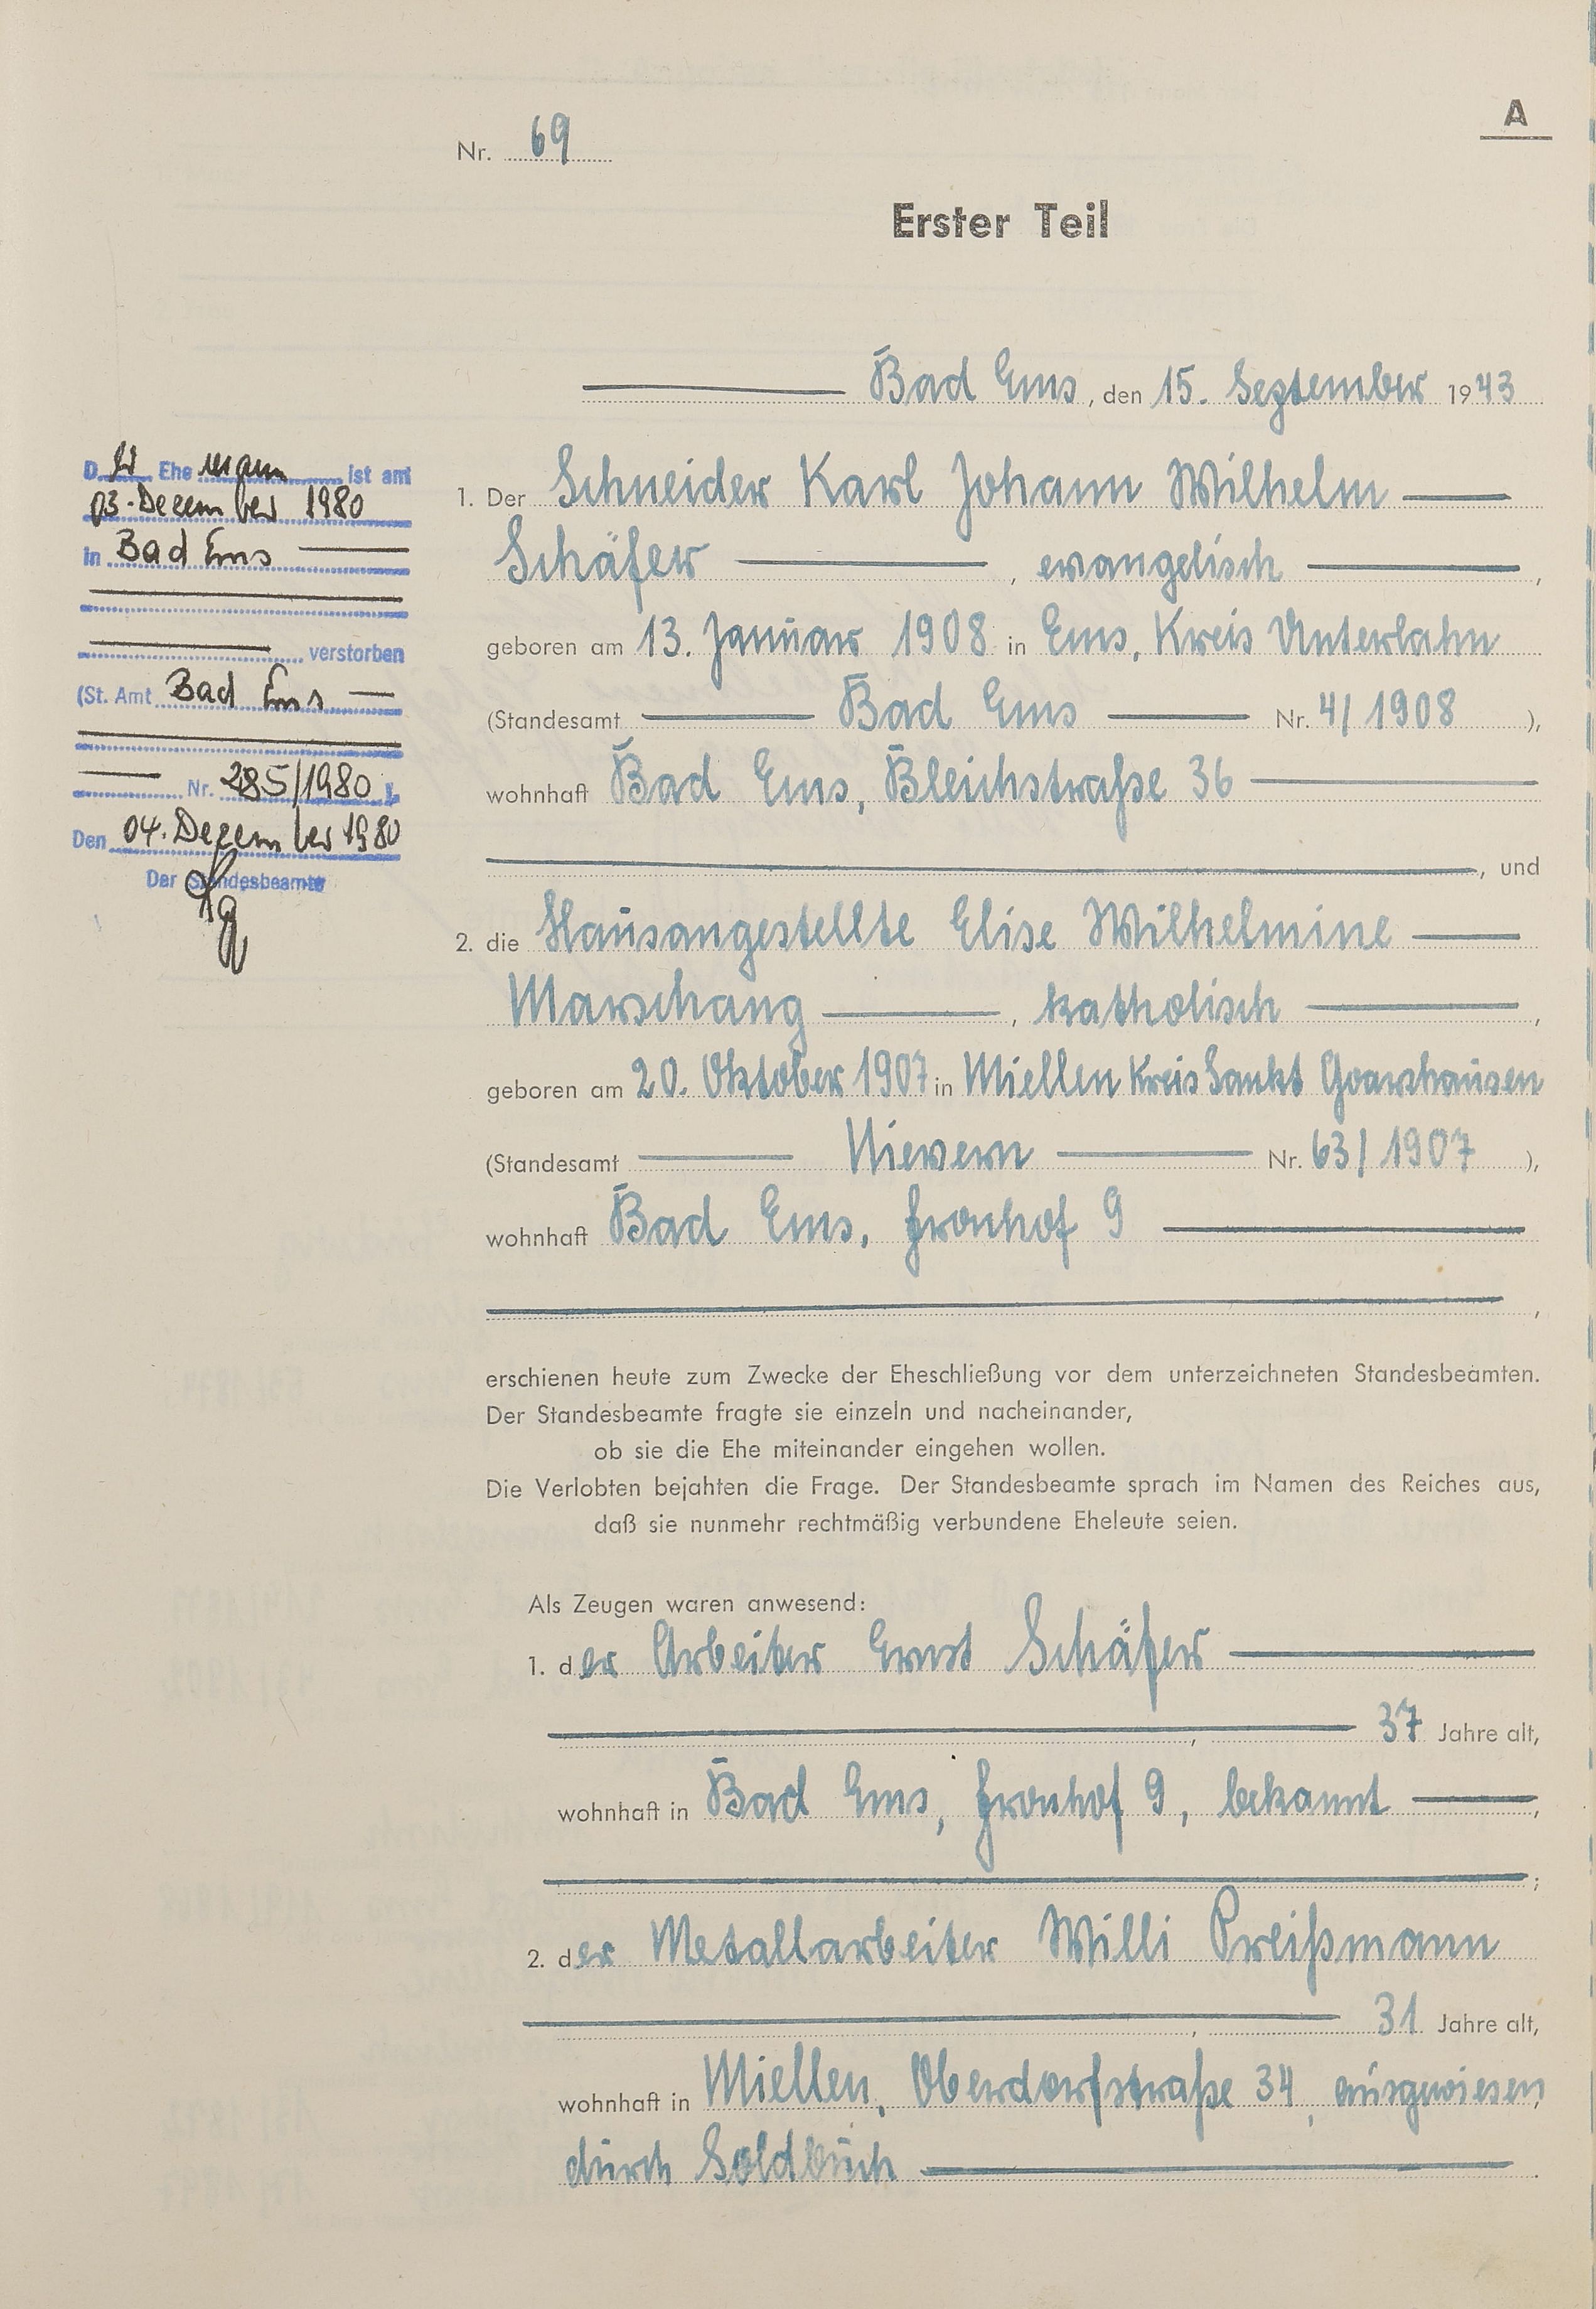 A
Nr. 69
Erster Teil
Bad Ems, den 15. September 1943
D er Ehe mann ist am
03. Dezember 1980
in Bad Ems
verstorben
(St. Amt Bad Ems
Nr. 285/1980 ).
Den 04. Dezember 1980
Der Standesbeamte
1. Der Schneider Karl Johann Wilhelm
Schäfer, evangelisch,
geboren am 13. Januar 1908 in Ems, Kreis Unterlahn
(Standesamt Bad Ems Nr. 4/1908 ),
wohnhaft Bad Ems, Bleichstraße 36
, und
2. die Hausangestellte Elise Wilhelmine
Marschang, katholisch,
geboren am 20. Oktober 1907 in Miellen Kreis Sankt Goarshausen
(Standesamt Nievern Nr. 63/1907 ),
wohnhaft Bad Ems, Fronhof 9
,
erschienen heute zum Zwecke der Eheschließung vor dem unterzeichneten Standesbeamten.
Der Standesbeamte fragte sie einzeln und nacheinander,
ob sie die Ehe miteinander eingehen wollen.
Die Verlobten bejahten die Frage. Der Standesbeamte sprach im Namen des Reiches aus,
daß sie nunmehr rechtmäßig verbundene Eheleute seien.
Als Zeugen waren anwesend:
1. der Arbeiter Ernst Schäfer
, 37 Jahre alt,
wohnhaft in Bad Ems, Fronhof 9, bekannt,
;
2. der Metallarbeiter Willi Preißmann
, 31 Jahre alt,
wohnhaft in Miellen, Oberdorfstraße 34, ausgewiesen
durch Soldbuch.